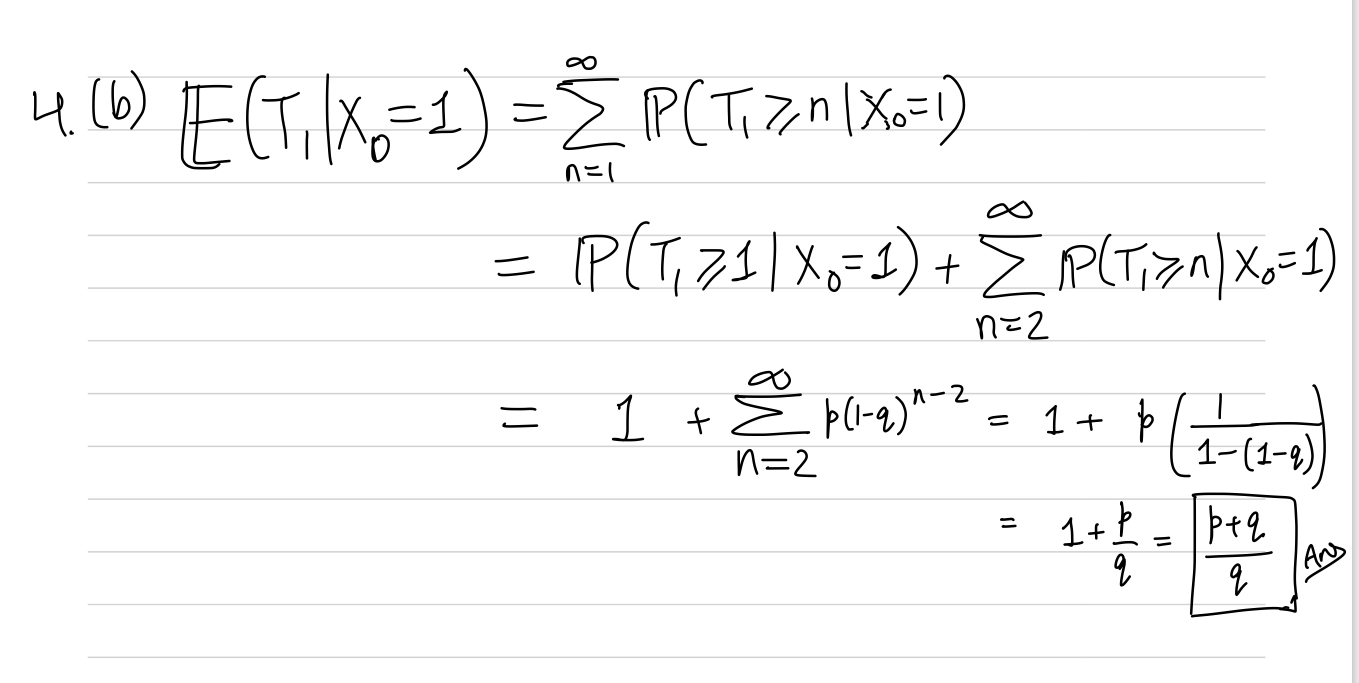 4. (b) 𝔼(T₁|X₀=1) = ∑_{n=1}^{∞} ℙ(T₁⩾n|X₀=1)
= ℙ(T₁⩾1|X₀=1) + ∑_{n=2}^{∞} ℙ(T₁⩾n|X₀=1)
= 1 + ∑_{n=2}^{∞} p(1-q)^{n-2} = 1 + p(1/(1-(1-q)))
= 1 + p/q = (p+q)/q Ans